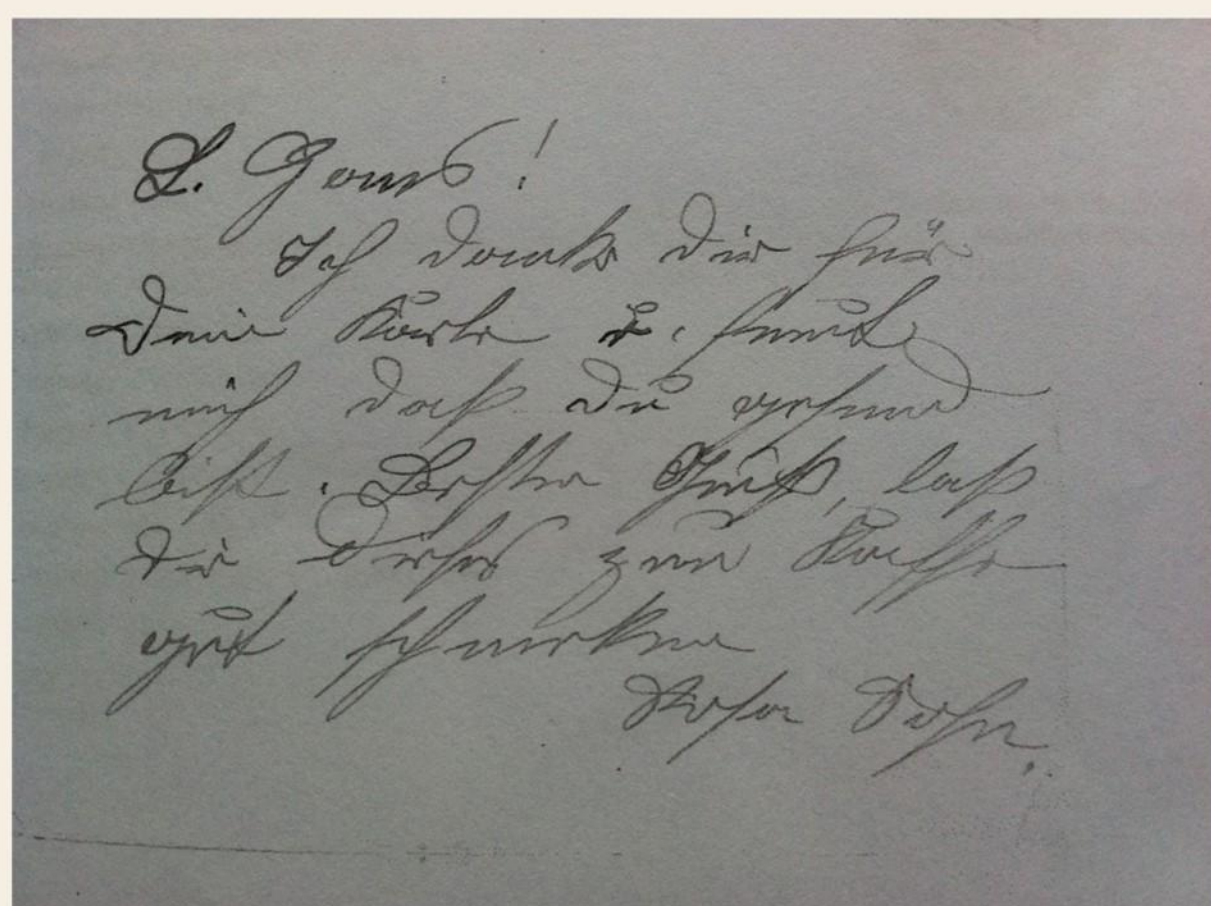 L. Hans!
Ich danke dir für
Deine Karte u. freut
mich daß du gesund
bist. Besten Gruß, laß
dir dieses zum Kaffe
gut schmecken
Rosa